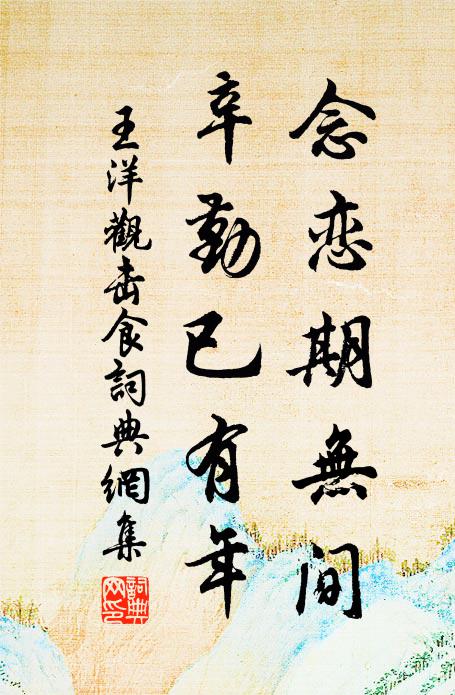 念恋期無间
辛勤已有年
王洋觀击食詞典網集
詞典网印